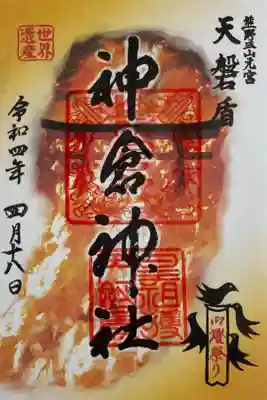 熊野三山元宮
天磐盾
神倉神社
世界遺産
令和四年 四月十八日
御燈祭り